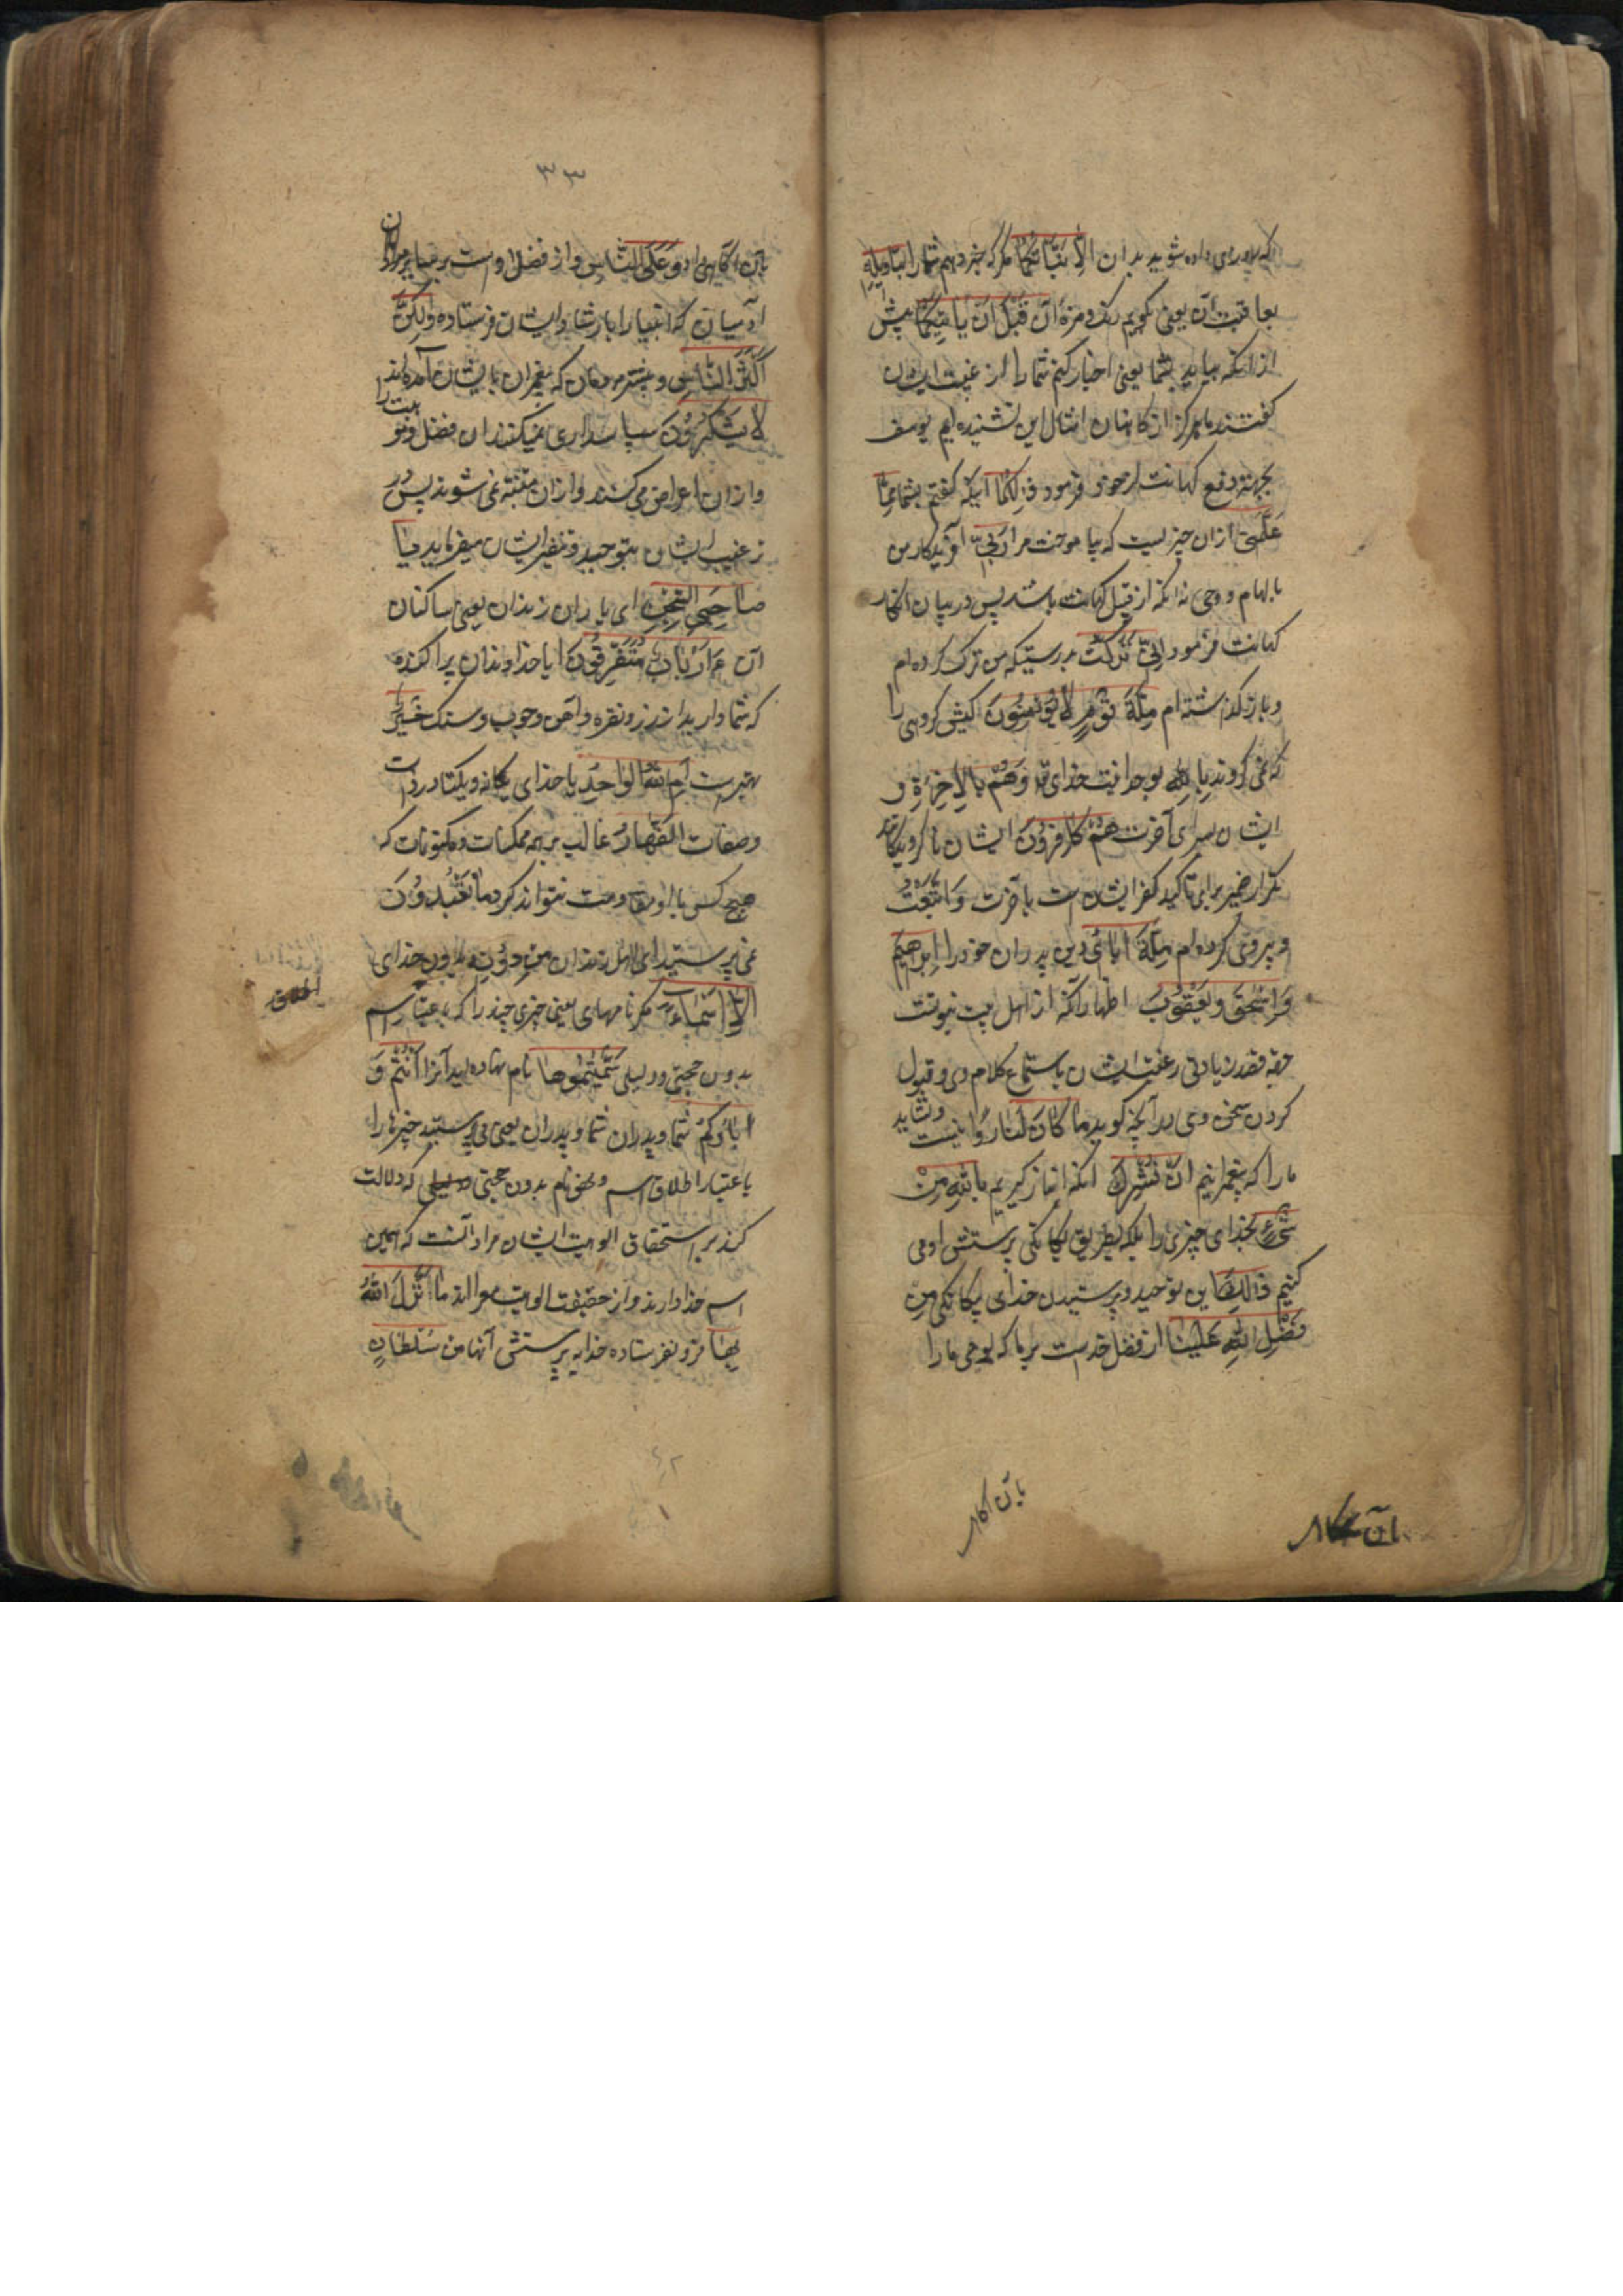 که بدو روزی داده شوید بدان الا نبأتکما مگر که خبر دهم شما را بتأویله
بعاقبت آن یعنی بگویم رنگ و مزه آن قبل ان یأتیکما پیش
از آنکه بیاید بشما یعنی اخبار کنم شما را از غیب ایشان
گفتند ما هرگز از کاهنان امثال این نشنیده ایم یوسف
بجهة دفع کهانت از خود فرمود ذلکما آنکه گفتم بشما مما
علمنی از آن چیزیست که بیاموخت مرا ربی آفریدکار من
بالهام و وحی نه آنکه از قبیل کهانت باشد پس در بیان انکار
کهانت فرمود انی ترکت بدرستیکه من ترک کرده ام
و باز گذشته ام ملة قوم لا یؤمنون کیش گروهی را
که نمی گروند بالله بوحدانیت خدای و هم بالاخرة و
ایشان بسرای آخرت هم کافرون ایشان ناگرویدگانند
تکرار ضمیر برای تاکید کفر ایشان است بآخرت و اتبعت
و پیروی کرده ام ملة ابائی دین پدران خود را ابرهیم
و اسحق و یعقوب اظهار آنکه از اهل بیت نبوتست
جهة زیادتی رغبت ایشان باستماع کلام وی و قبول
کردن سخن وی در آنچه گوید ما کان لنا روا نیست و نشاید
ما را که پیغمبرانیم ان نشرک آنکه انباز گیریم بالله من
شیء بخدای چیزی را بلکه بطریق یگانگی پرستش او می
کنیم ذلک این توحید و پرستیدن خدای بیگانگی من
فضل الله علینا از فضل خداست بر ما که بوحی ما را
بآن آگاه
بآن آگاه
۳۳
بآن آگاهی داد و علی الناس و از فضل اوست بر سایر مردمان
آدمیان که انبیا را بارشاد ایشان فرستاده ولکن
اکثر الناس و بیشتر مردمان که پیغمبران بایشان آمده اند
لا یشکرون سپاسداری نمیکنند آن فضل و نبوت را
و از آن اعراض می کنند و از آن متنبه نمی شوند پس در
ترغیب ایشان بتوحید و تنفیر ایشان میفرماید یا
صاحبی السجن ای یاران زندان یعنی ساکنان
آن ءارباب متفرقون آیا خداوندان پراکنده
که شما دارید از زر و نقره و آهن و چوب و سنگ خیر
بهترست ام الله الواحد یا خدای یگانه و یکتا در ذات
و صفات القهار غالب بر همه ممکنات و مکنونات که
هیچ کس با او مقاومت نتواند کرد ما تعبدون
نمی پرستید ای اهل زندان من دونه بدون خدای
الا اسماء مگر نامهای یعنی چیزی چند را که باعتبار اسم
اطلاق
بدون حجتی و دلیلی سمیتموها نام نهاده اید آنرا انتم و
اباؤکم شما و پدران شما یعنی می پرستید چیزها را
باعتبار اطلاق اسم و محض نام بدون حجتی و دلیلی که دلالت
کند بر استحقاق الوهیت ایشان مراد آنست که همین
اسم خدا دارند و از حقیقت الوهیت معرااند ما انزل الله
بها فرو نفرستاده خدا به پرستش آنها من سلطان